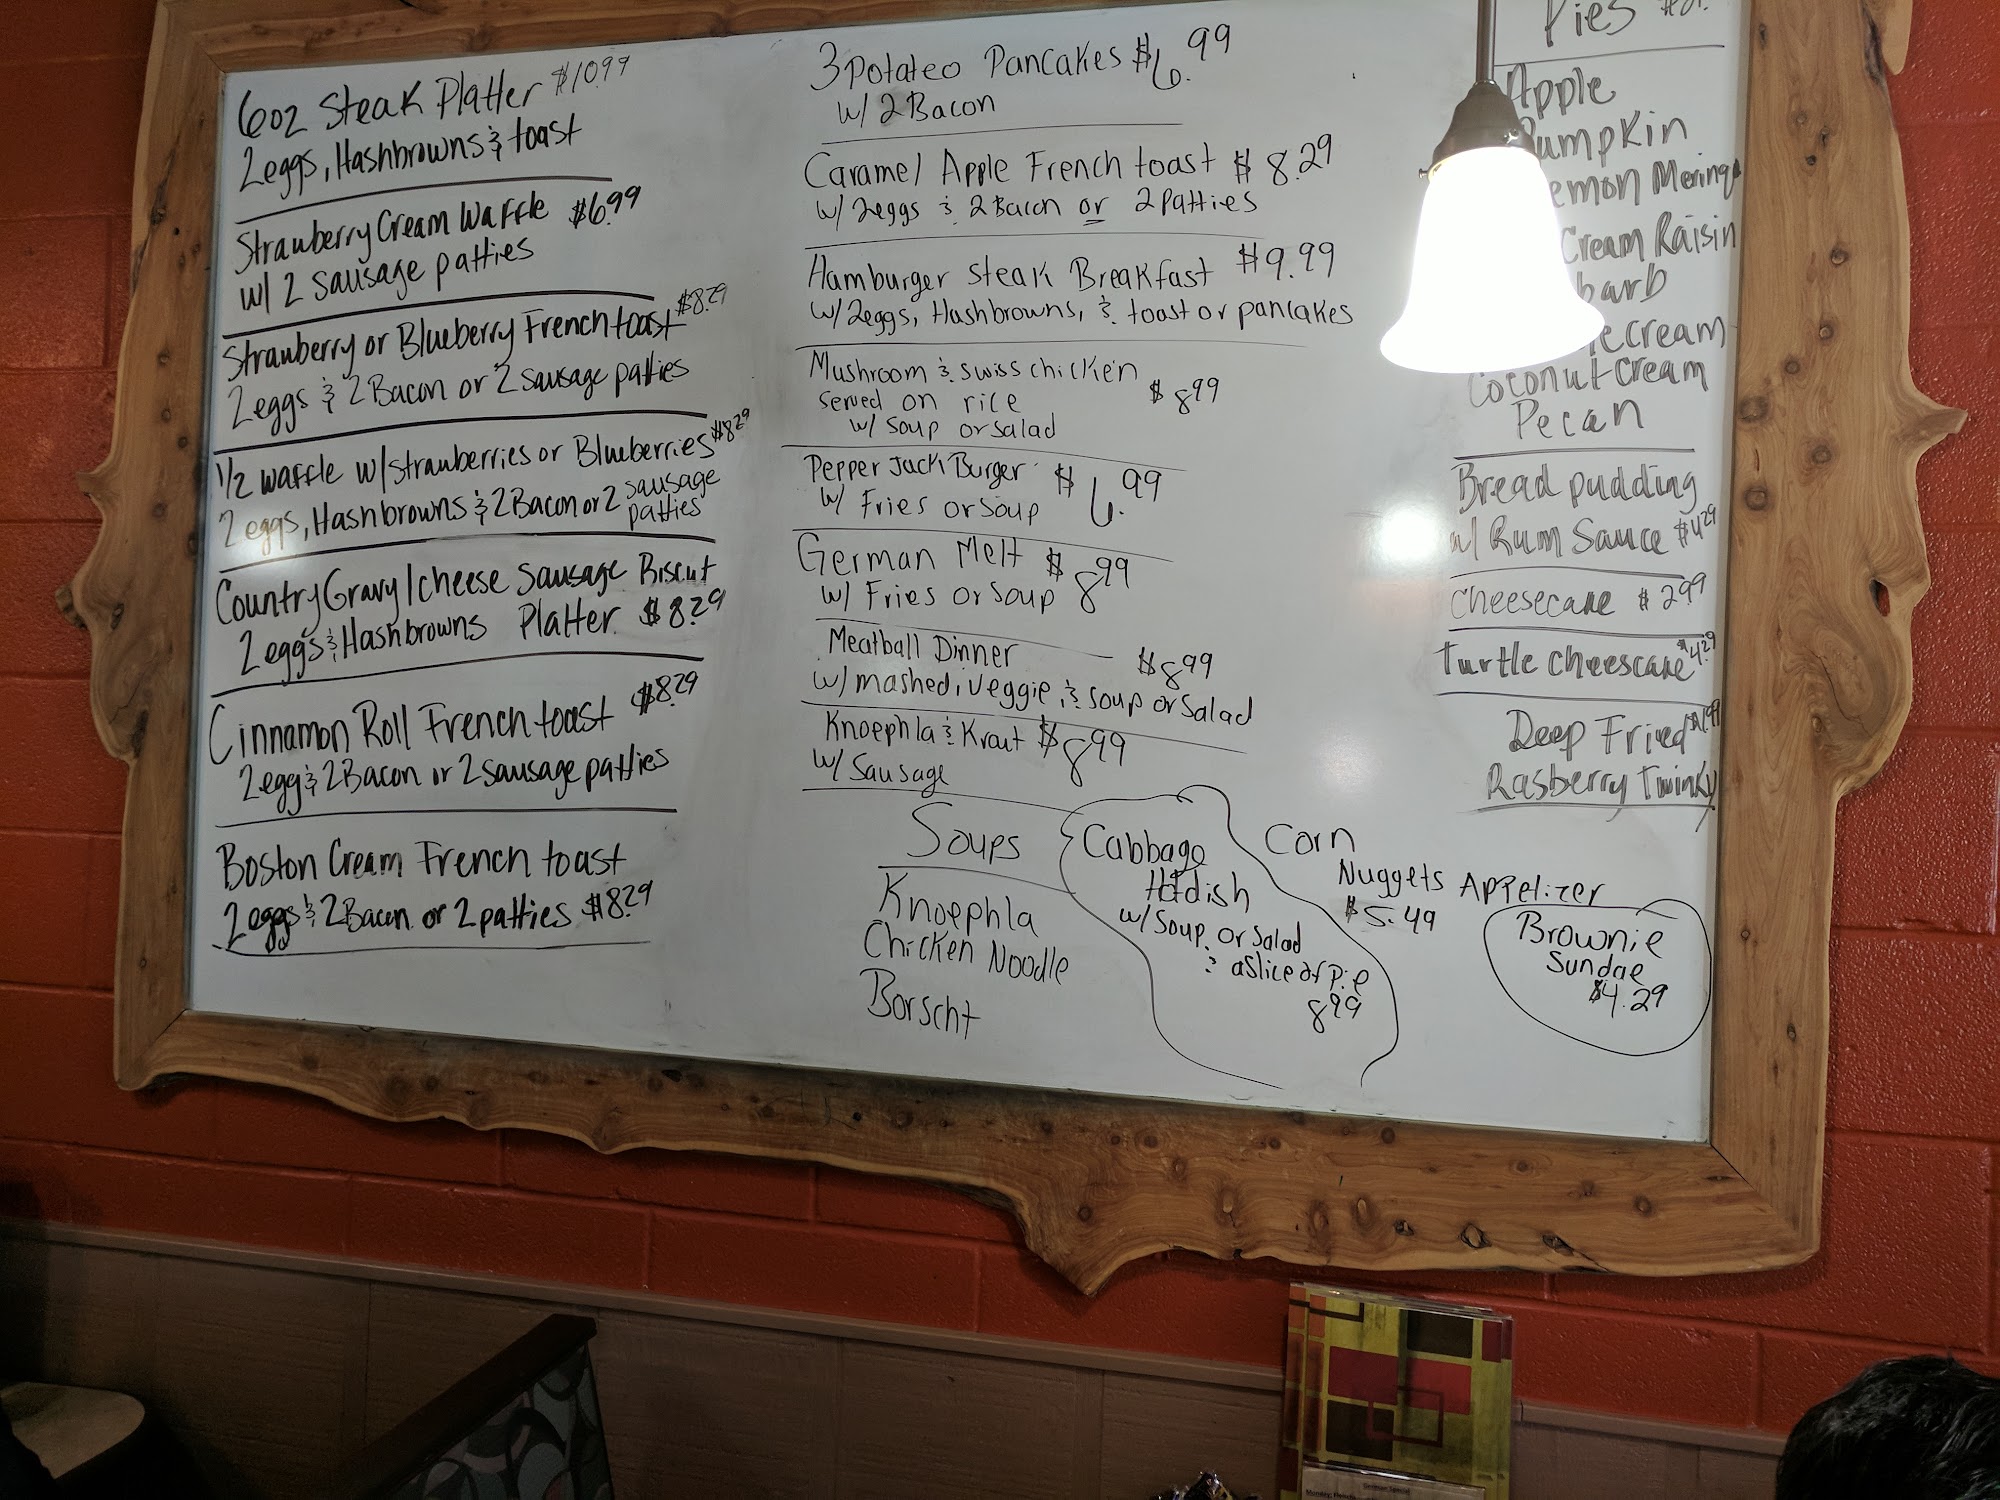 6oz Steak Platter $10.99
2eggs, Hashbrowns & toast
Strawberry Cream Waffle $6.99
w/ 2 Sausage patties
Strawberry or Blueberry French toast $8.29
2eggs & 2 Bacon or 2 sausage patties
1/2 Waffle w/strawberries or Blueberries $8.29
2 eggs, Hashbrowns & 2 Bacon or 2 sausage patties
Country Gravy/cheese Sausage Biscut
2 eggs & Hashbrowns Platter $8.29
Cinnamon Roll French toast $8.29
2 egg & 2 Bacon or 2 sausage patties
Boston Cream French toast
2 eggs & 2 Bacon or 2 patties $8.29
3 Potateo Pancakes $6.99
w/ 2 Bacon
Caramel Apple French toast $8.29
w/ 2eggs & 2 Bacon or 2 Patties
Hamburger Steak Breakfast $9.99
w/ 2eggs, Hashbrowns, & toast or pancakes
Mushroom & Swiss chicken
served on rice $8.99
w/ Soup or salad
Pepper Jack Burger $6.99
w/ Fries or Soup
German Melt $8.99
w/ Fries or Soup
Meatball Dinner $8.99
w/ mashed, veggie, & soup or Salad
Knoephla & Kraut $8.99
w/ Sausage
Soups
Knoephla
Chicken Noodle
Borscht
Cabbage
Hotdish
w/ Soup or Salad
& a slice of Pie
8.99
Corn
Nuggets Appetizer
$5.49
Brownie
Sundae
$4.29
Pies
Apple
Pumpkin
Cream Raisin
Coconut Cream
Pecan
Bread pudding
w/ Rum Sauce $4.29
Cheesecake $2.99
Turtle Cheesecake $4.29
Deep Fried $1.99
Rasberry Twinky